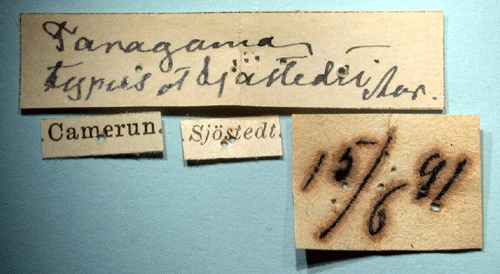 Paragama
typus ♂ Sjöstedti Aur.
Camerun.
Sjöstedt.
15/6 91